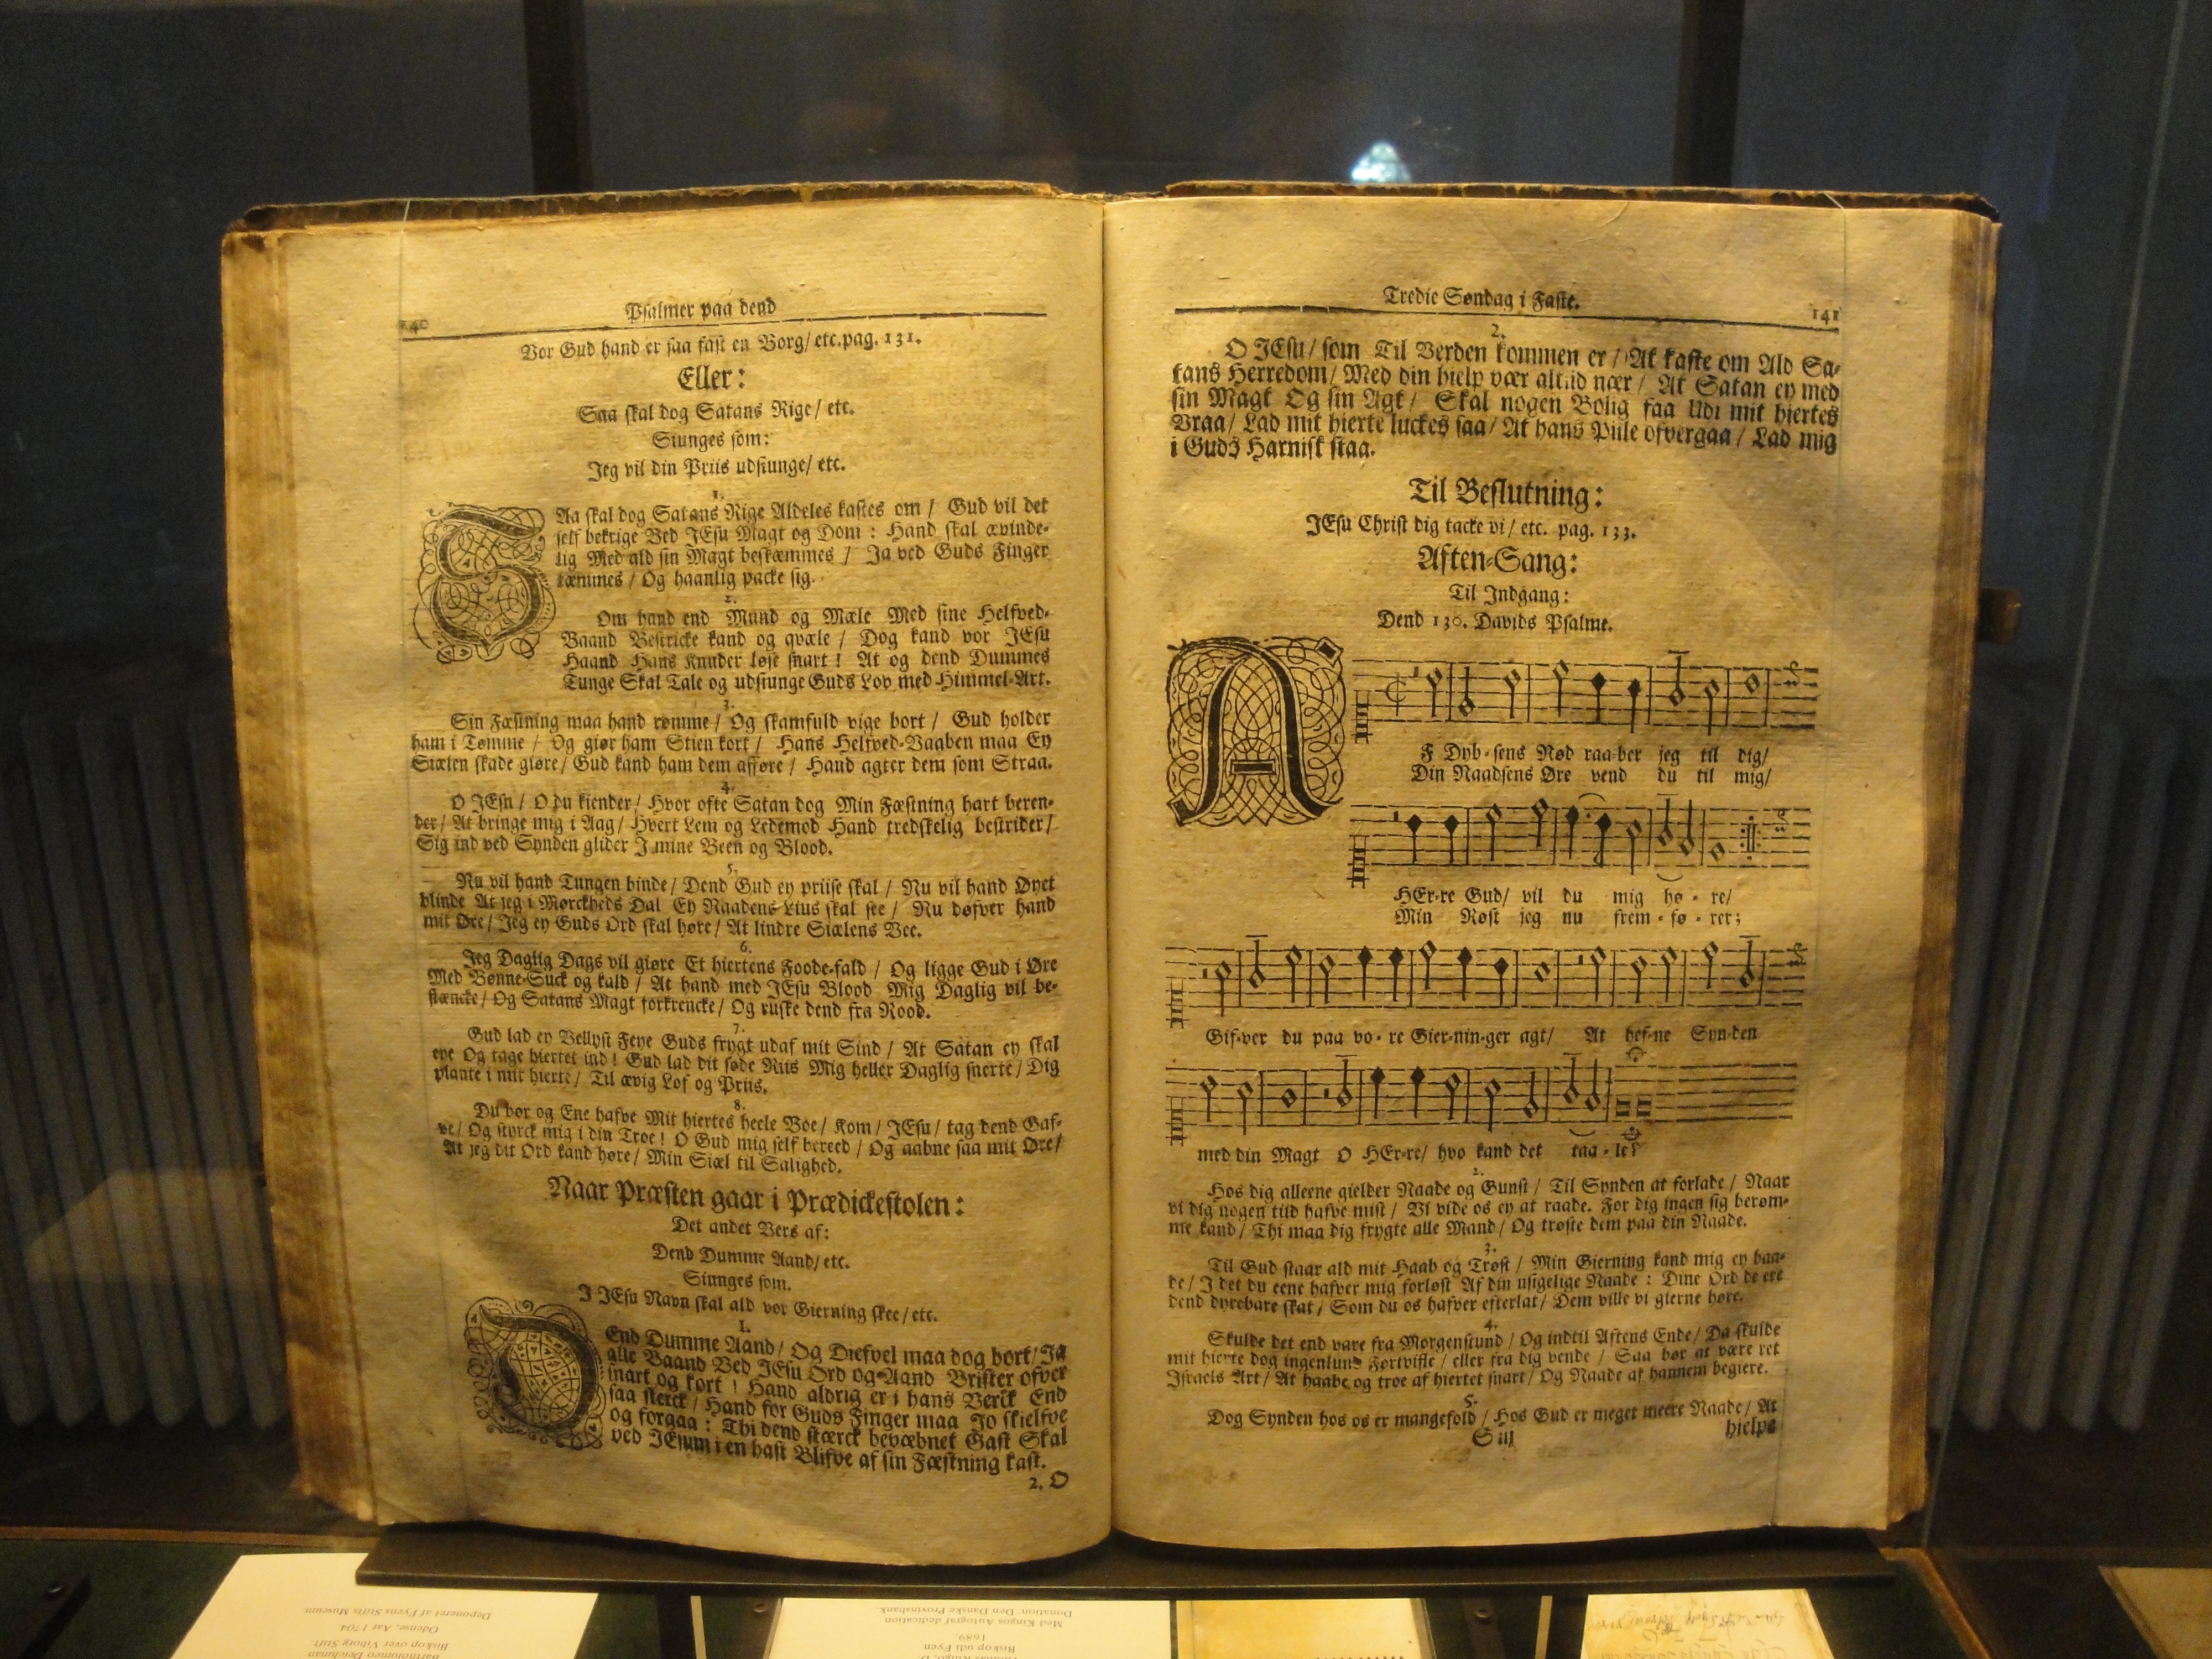 Psalmer paa dend
140
Vor Gud hand er saa fast en Borg/ etc. pag. 131.
Eller:
Saa skal dog Satans Rige/ etc.
Siunges som:
Jeg vil din Priis udsiunge/ etc.
1.
SAa skal dog Satans Rige Aldeles kastes om / Gud vil det
self bekrige Ved JEsu Magt og Dom : Hand skal ævinde-
lig Med ald sin Magt beskæmmes / Ja ved Guds Finger
tæmmes / Og haanlig packe sig.
2.
Om hand end Mund og Mæle Med sine Helfved-
Baand Bestricke kand og qvæle / Dog kand vor JEsu
Haand Hans Knuder løse snart ! At og dend Dummes
Tunge Skal Tale og udsiunge Guds Lov med Himmel-Art.
3.
Sin Fæstning maa hand rømme / Og skamfuld vige bort / Gud holder
ham i Tømme / Og giør ham Stien kort / Hans Helfved-Vaaben maa Ey
Siælen skade giøre / Gud kand ham dem afføre / Hand agter dem som Straa.
4.
O JEsu / O du kiender / Hvor ofte Satan dog Min Fæstning hart beren-
der / At bringe mig i Aag / Hvert Lem og Ledemod Hand tredskelig bestrider /
Sig ind ved Synden glider J mine Been og Blood.
5.
Nu vil hand Tungen binde / Dend Gud ey priise skal / Nu vil hand Øyet
blinde At jeg i Mørckheds Dal Ey Naadens Lius skal see / Nu døfver hand
mit Øre / Jeg ey Guds Ord skal høre / At lindre Siælens Vee.
6.
Jeg Daglig Dags vil giøre Et hiertens Foode-fald / Og ligge Gud i Øre
Med Bønne-Suck og kald / At hand med JEsu Blood Mig Daglig vil be-
stæncke / Og Satans Magt forkrencke / Og ruske dend fra Rood.
7.
Gud lad ey Vellyst Feye Guds frygt udaf mit Sind / At Satan ey skal
eye Og tage hiertet ind ! Gud lad dit søde Riis Mig heller Daglig snerte / Dig
plante i mit hierte / Til ævig Lof og Priis.
8.
Du bør og Ene hafve Mit hiertes heele Boe / Kom / JEsu / tag dend Gaf-
ve / Og styrck mig i din Troe ! O Gud mig self bereed / Og aabne saa mit Øre /
At jeg dit Ord kand høre / Min Siæl til Salighed.
Naar Præsten gaar i Prædickestolen:
Det andet Vers af:
Dend Dumme Aand/ etc.
Siunges som.
J JEsu Navn skal ald vor Gierning skee / etc.
1.
DEnd Dumme Aand / Og Diefvel maa dog bort / Ja
alle Baand Ved JEsu Ord og Aand Brister ofver
snart og kort ! Hand aldrig er i hans Verck End
saa sterck / Hand for Guds Finger maa Jo skielfve
og forgaa : Thi dend stærck bevæbnet Gast Skal
ved JEsum i en hast Blifve af sin Fæstning kast.
2. O
Tredie Søndag i Faste.
141
2.
O JEsu / som Til Verden kommen er / At kaste om Ald Sa-
tans Herredom / Med din hielp vær altid nær / At Satan ey med
sin Magt Og sin Agt / Skal nogen Bolig faa Udi mit hiertes
Vraa / Lad mit hierte luckes saa / At hans Piile ofvergaa / Lad mig
i Guds Harnisk staa.
Til Beslutning:
JEsu Christ dig tacke vi / etc. pag. 133.
Aften-Sang:
Til Indgang:
Dend 130. Davids Psalme.
AF Dyb-sens Nød raa-ber jeg til dig/
Din Naadsens Øre vend du til mig/
HEr-re Gud/ vil du mig hø - re/
Min Røst jeg nu frem - fø - rer;
Gif-ver du paa vo - re Gier-nin-ger agt/ At hef-ne Syn-den
med din Magt O HEr-re/ hvo kand det taa - le?
2.
Hos dig alleene gielder Naade og Gunst / Til Synden at forlade / Naar
vi dig nogen tiid hafve mist / Vi vide os ey at raade. For dig ingen sig berøm-
me kand / Thi maa dig frygte alle Mand / Og trøste dem paa din Naade.
3.
Til Gud staar ald mit Haab og Trøst / Min Gierning kand mig ey baa-
de / J det du eene hafver mig forløst Af din usigelige Naade : Dine Ord de ere
dend dyrebare skat / Som du os hafver efterlat / Dem ville vi gierne høre.
4.
Skulde det end vare fra Morgenstund / Og indtil Aftens Ende / Da skulde
mit hierte dog ingenlund Fortvifle / eller fra dig vende / Saa bør at være ret
Israels Art / At haabe og troe af hiertet snart / Og Naade af hannem begiere.
5.
Dog Synden hos os er mangefold / Hos Gud er meget meere Naade / At
S iij
hielpe
Bartholomeo Deichman
Biskop over Viborg Stift.
Odense, Aar 1704
Deponeret af Fyens Stifts Museum.
Biskop udi Fyen
1689.
Med Kingos Autograf dedication
Donation: Den Danske Provinsbank.